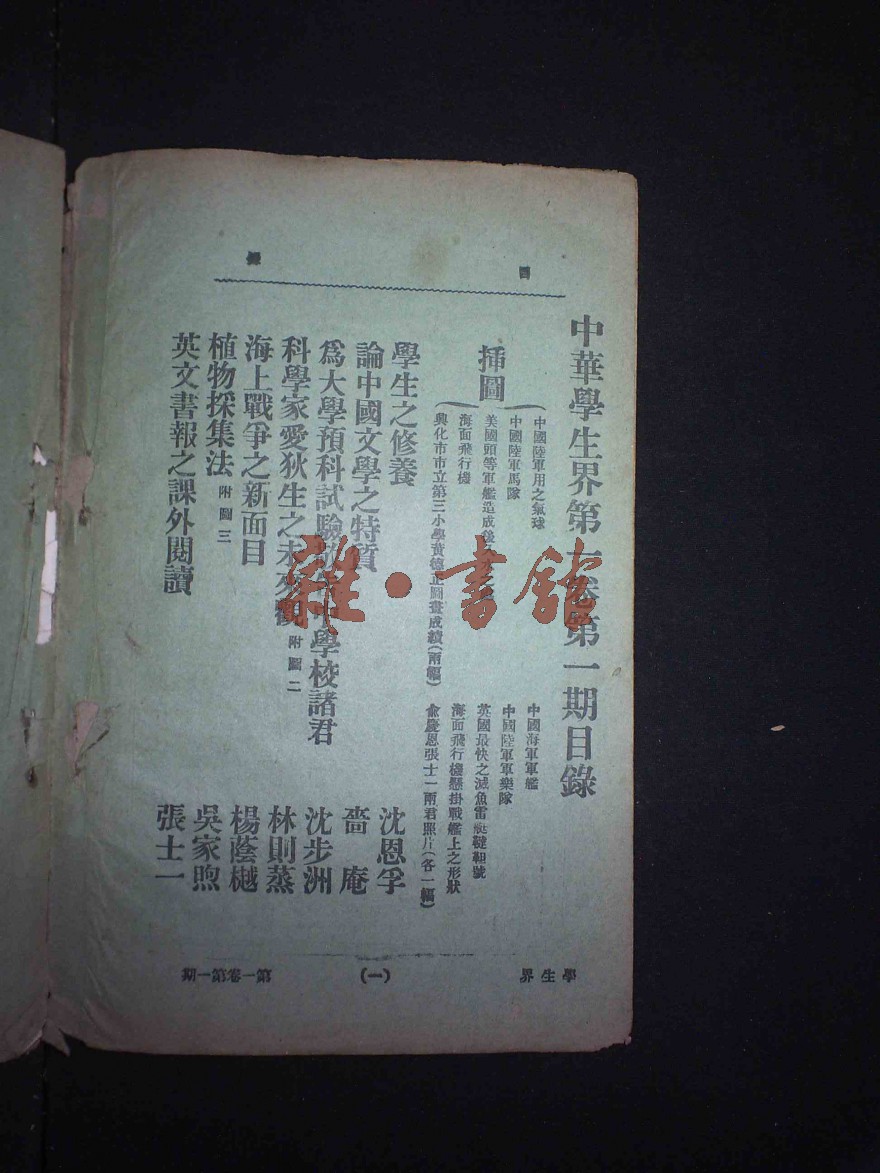 目錄
中華學生界第一卷第一期目錄
插圖
中國陸軍用之氣球
中國海軍軍艦
中國陸軍馬隊
中國陸軍軍樂隊
美國頭等軍艦造成後
英國最快之滅魚雷艇韃靼號
海面飛行機
海面飛行機懸掛戰艦上之形狀
興化市市立第三小學黃德正圖畫成績(兩幅)
俞慶恩張士一兩君照片(各一幅)
學生之修養
沈恩孚
論中國文學之特質
嗇庵
爲大學預科試驗 中學校諸君
沈步洲
科學家愛狄生之未來觀 附圖二
林則蒸
海上戰爭之新面目
楊蔭樾
植物採集法 附圖三
吳家煦
英文書報之課外閱讀
張士一
學生界
(一)
第一卷第一期
雜·書館